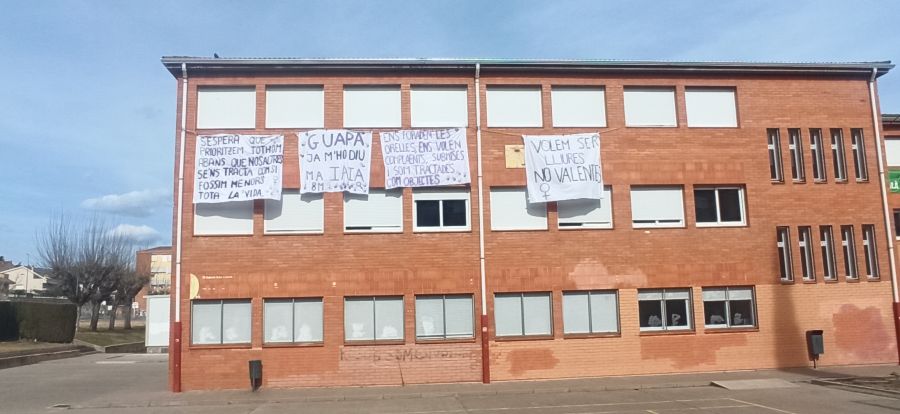 S'ESPERA QUE
PRIORITZEM TOTHOM
ABANS QUE NOSALTRES
SE'NS TRACTA COM SI
FOSSIM MENORS
TOTA LA VIDA.
GUAPA
JA M'HO DIU
MA IAIA
8M
ENS FORADEN LES
ORELLES, ENS VOLEN
COMPLAENTS, SUBMISES
I SOM TRACTADES
COM OBJECTES
VOLEM SER
LLIURES
NO VALENTES